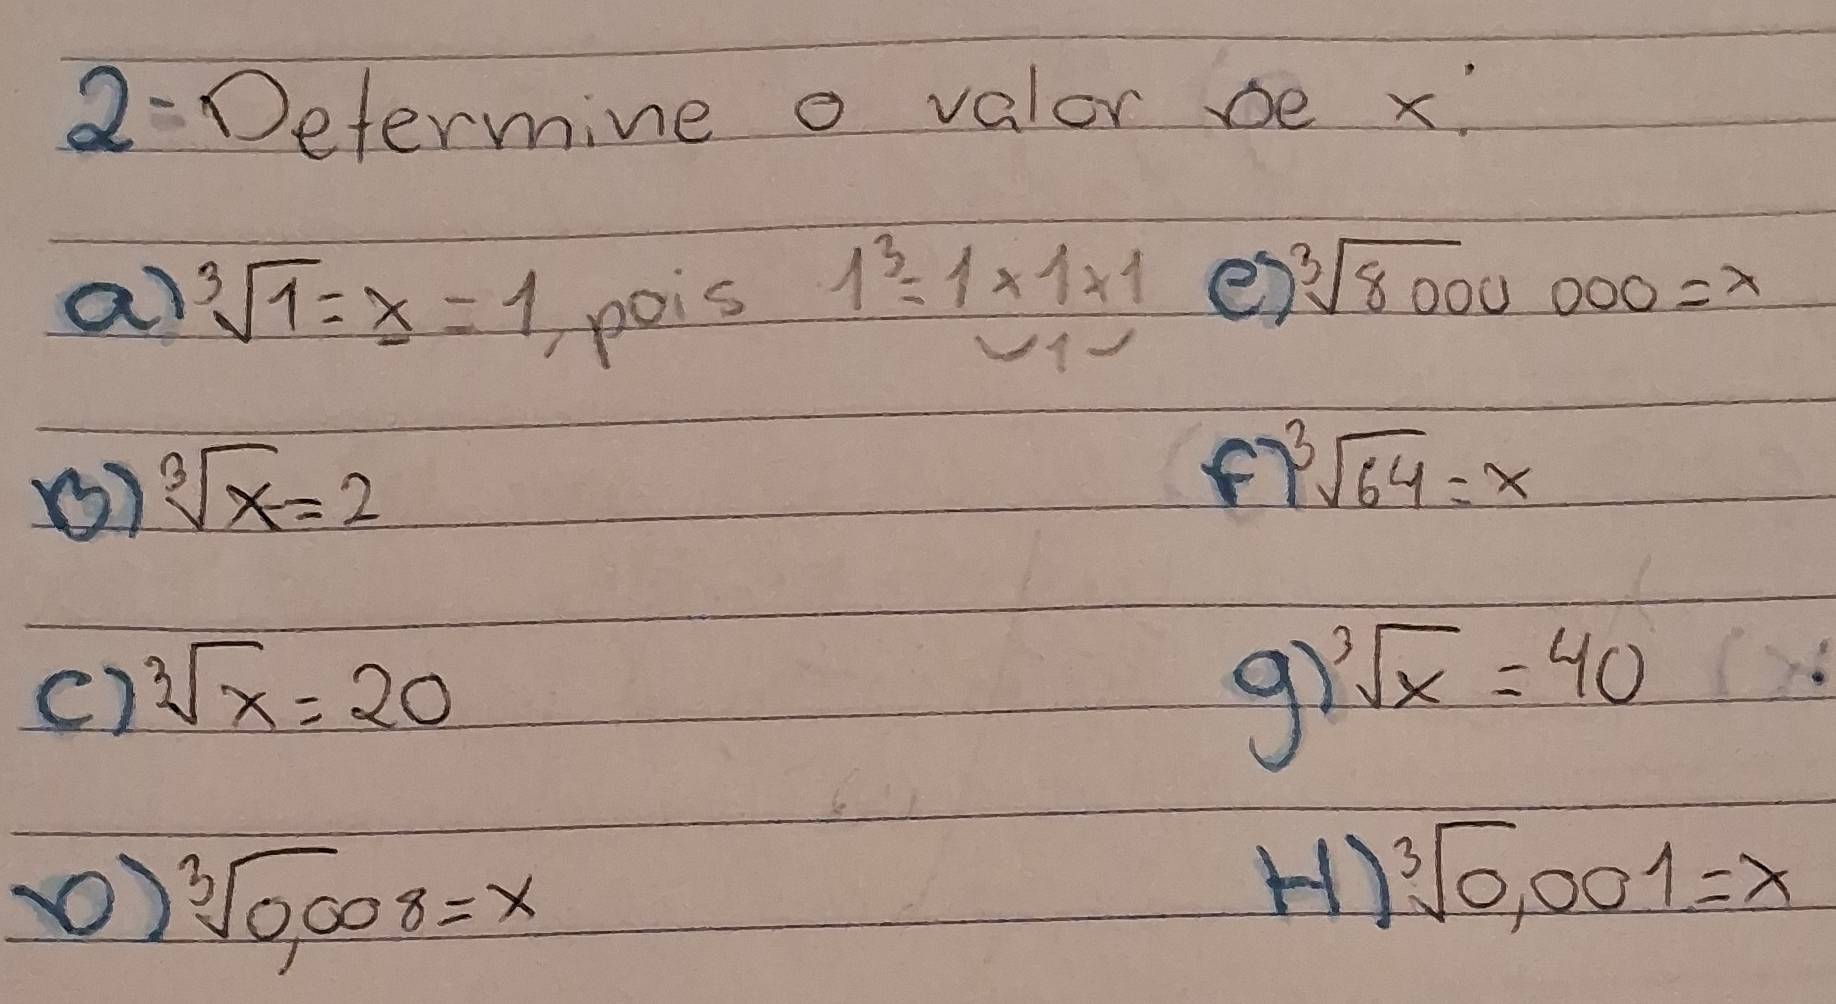 2 = Determine o valor de x:
a) ³√1 = x = 1, pois 1³ = 1x1x1 e) ³√8 000 000 = x
1
B) ³√x = 2 f) ³√64 = x
C) ³√x = 20 g) ³√x = 40
D) ³√0,008 = x H) ³√0,001 = x